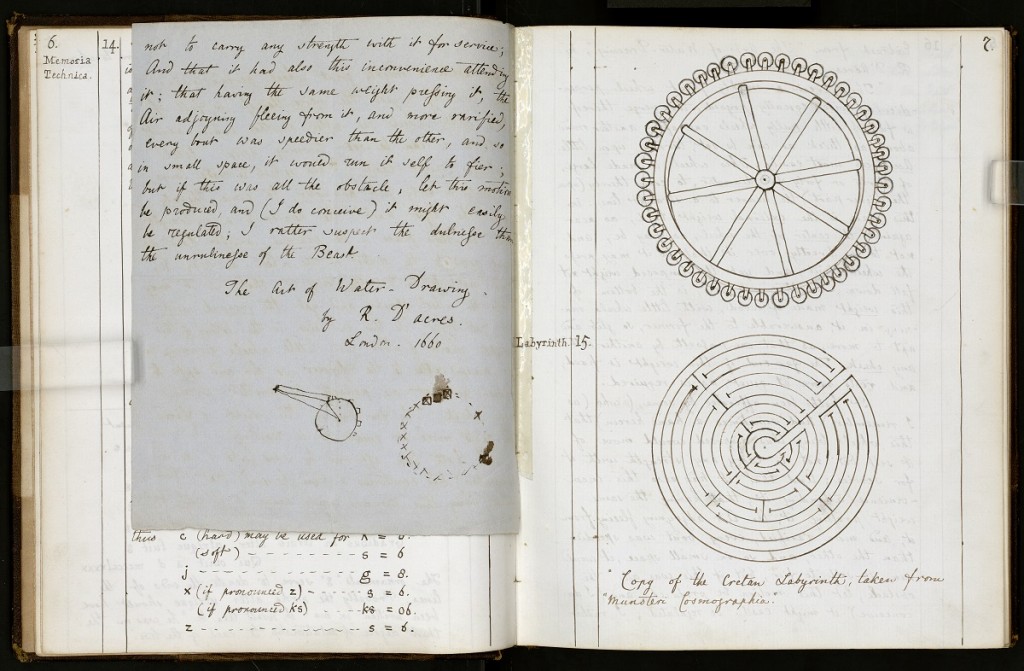 6.
Memoria
Technica.
14.
not to carry any strength with it for service;
And that it had also this inconvenience attending
it; that having the same weight pressing it, the
Air adjoyning fleeing from it, and more rarified,
every bout was speedier than the other, and so
in small space, it would run it self to fier;
but if this was all the obstacle, let this motion
be produced, and (I do conceive) it might easily
be regulated; I rather suspect the dulnesse than
the unrulinesse of the Beast
The Art of Water-Drawing.
by R. D'acres.
London. 1660
thus c (hard) may be used for k = 8.
(soft) - - - - - - - - s = 6
j - - - - - - - - g = 8.
x (if pronounced z) - - - - - s = 6.
(if pronounced ks) - - - - ks = 06.
z - - - - - - - - s = 6.
7.
Labyrinth. 15.
Copy of the Cretan Labyrinth, taken from
"Munsteri Cosmographia".